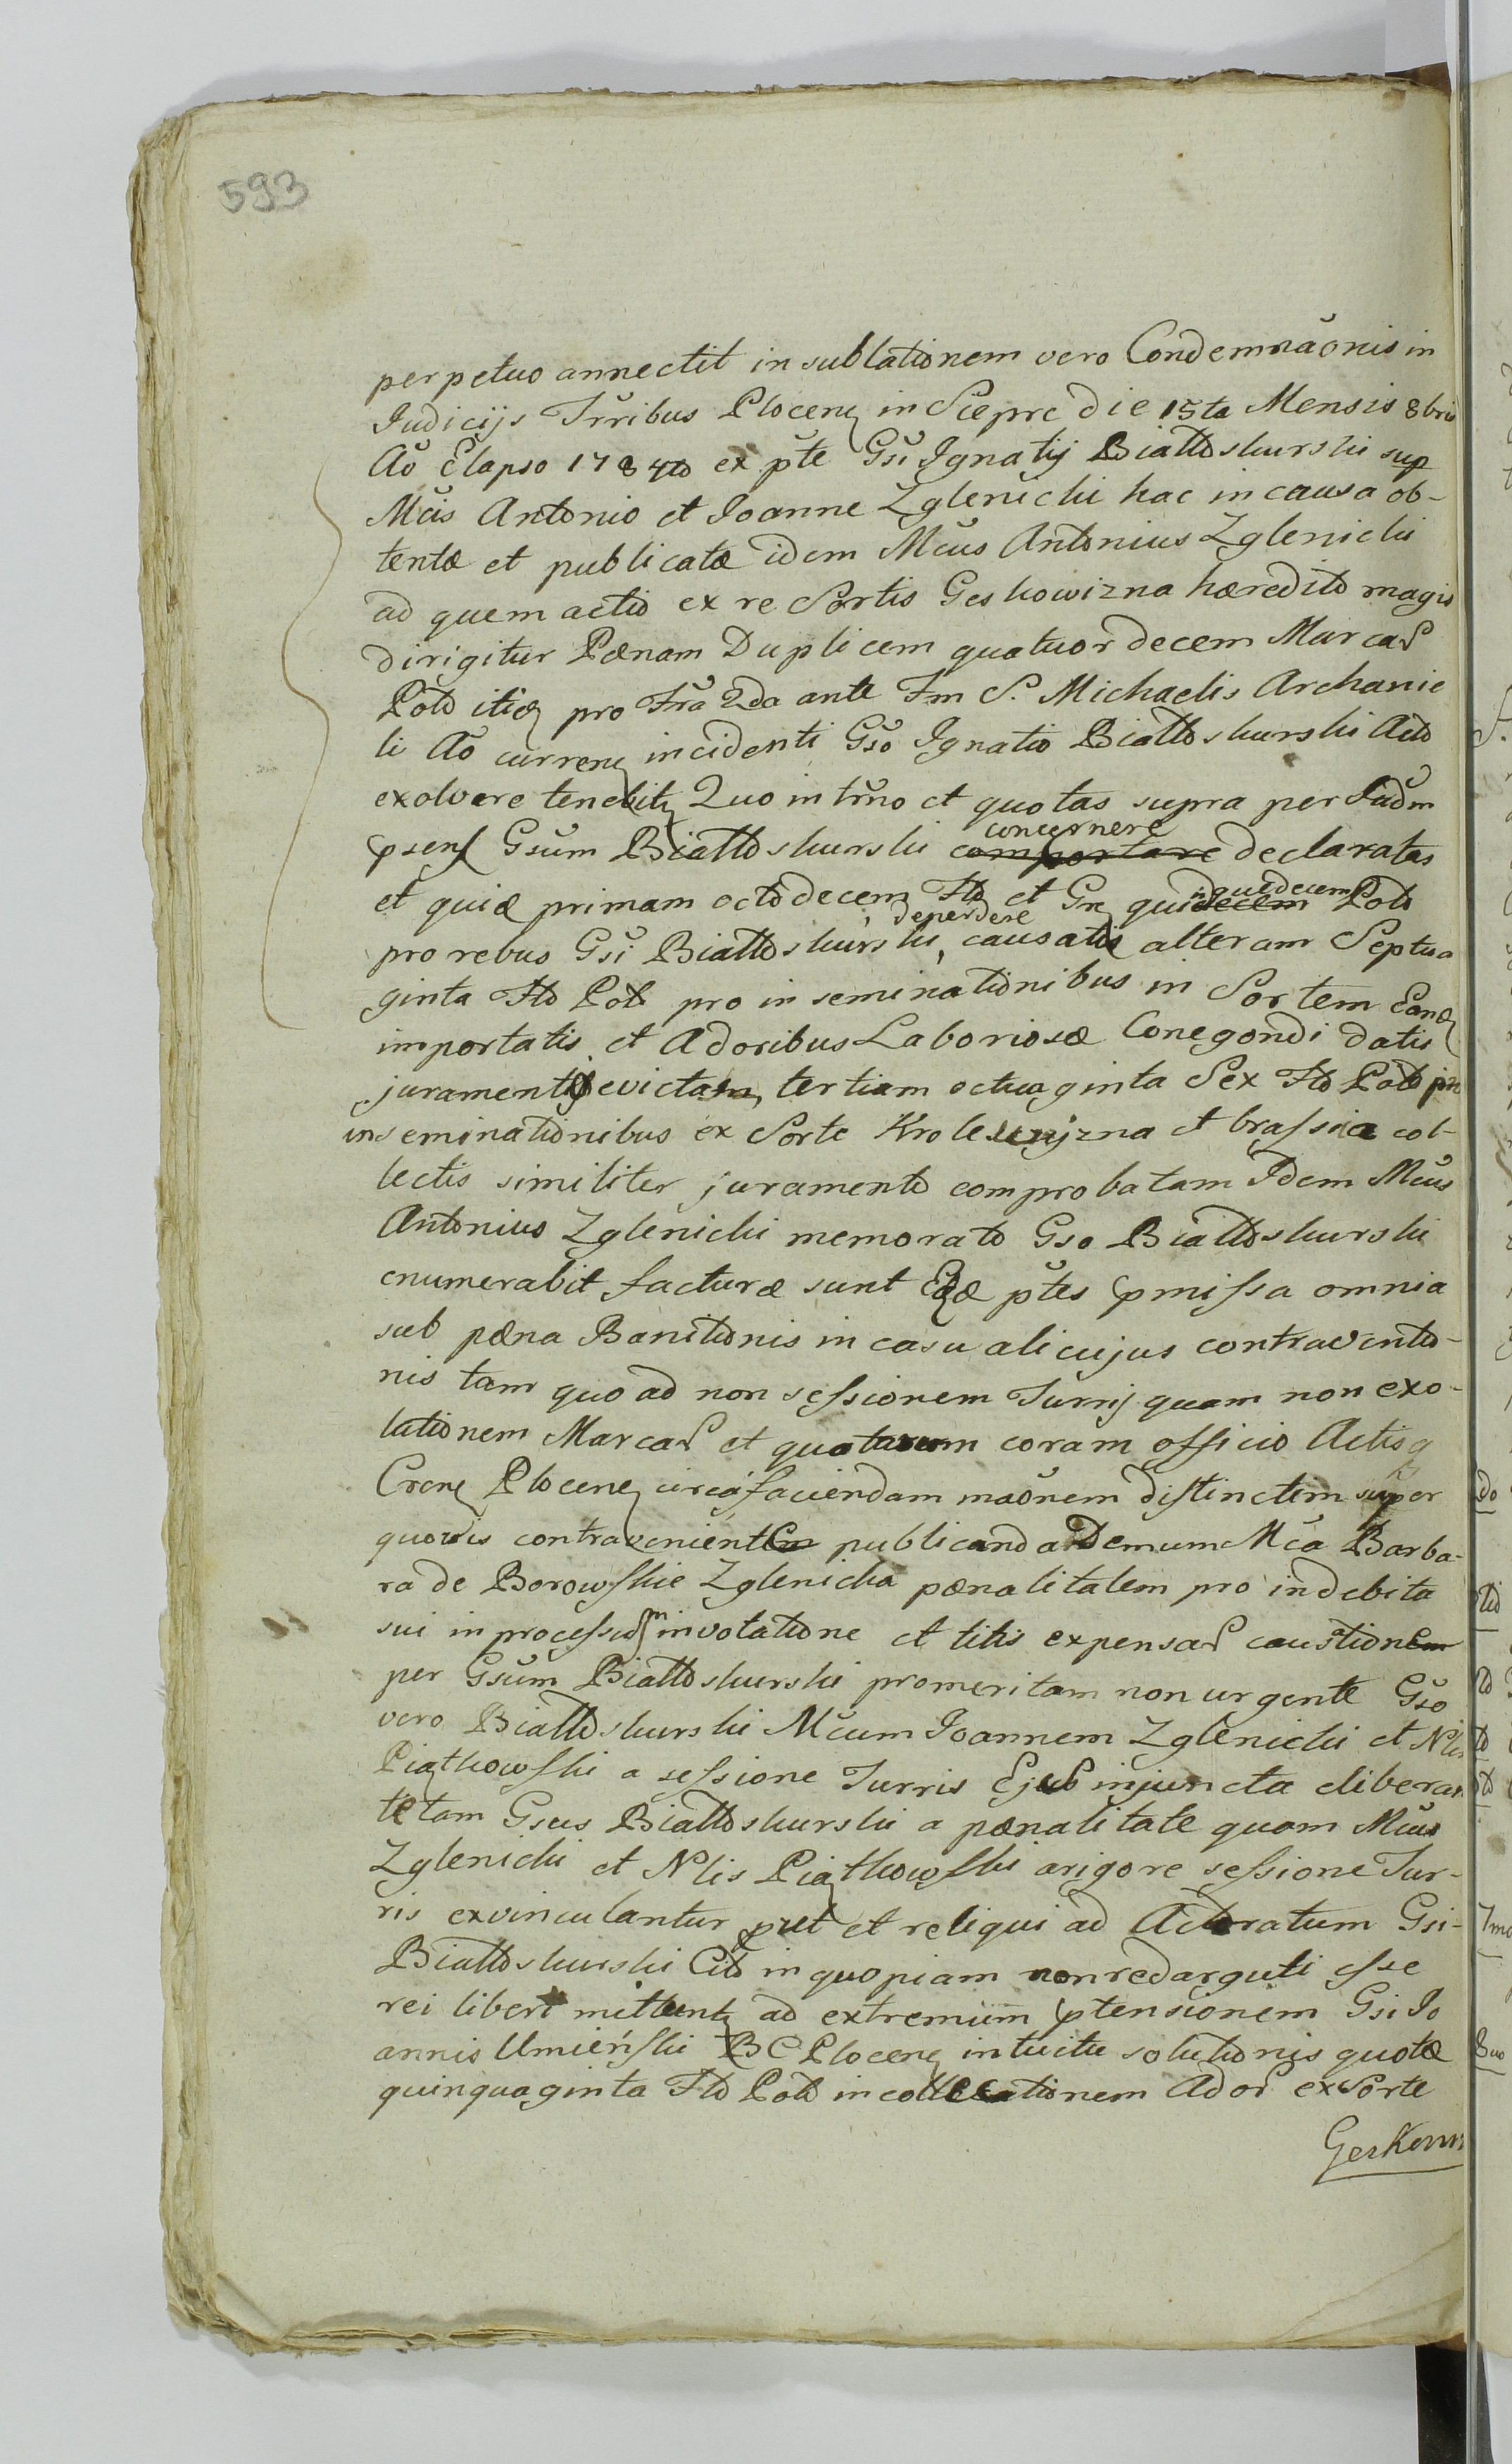 593
perpetuo annectit in sublationem vero Condemnãonis in
Judicijs Trŕibus Plocen in Sieprc die 15ta Mensis 8bris
Aõ Elapso 1784to ex pte Gsi Ignatij Białłoskurski sup
Mcis Antonio et Joanne Zglenicki hac in causa ob-
tentæ et publicatæ idem Mcus Antonius Zglenicki
ad quem actio ex re Sortis Geskowizna hæredito magis
dirigitur Pænam Duplicem quatuordecem Marcas
Polo itiq pro Fra 2da ante Fm S. Michaelis Archanie
li Aõ curren incidenti Gso Ignatio Białłoskurski Acto
exolvere tenebit Quo in trño et quotas supra per Judm
psens Gsum Białłoskurski comportare concernere declaratas
et quiæ primam octodecem Flo et Gr quindecem quedecem Polo
pro rebus Gsi Białłoskurski, deperdere causatis alteram Septua
ginta Flo Pol pro inseminationibus in Sortem Eand
importatis et Adoribus Laboriosæ Conegondi datis
juramento evictam, tertiam octuaginta Sex Flo Polo pro
inseminationibus ex Sorte Krolewizna et brassica col-
lectis similiter juramento comprobatam Idem Mcus
Antonius Zglenicki memorato Gso Białłoskurski
enumerabit facturæ sunt Eædæ ptes pmissa omnia
sub pæna Banitionis in casu alicujus contraventio-
nis tam quo ad non sessionem Turrij quam non exo-
lutionem Marcas et quotarum coram officio Actisq
Cren Plocen circa faciendam maõnem distinctim super
quovis contravenientem publicanda Demum Mca Barba-
ra de Borowskie Zglenicka pænalitatem pro indebita
sui in processum involatione et litis expensas caustionem
per Gsum Białłoskurski promeritam non urgente Gso
vero Białłoskurski Mcum Joannem Zglenicki et Nlis
Piątkowski a sessione Turris Ejus injuncta eliberan
te tam Gsus Białłoskurski a pænalitate quam Mcus
Zglenicki et Nlis Piątkowski arigore sessione Tur-
ris exvinculantur put et reliqui ad Actoratum Gsi-
Białłoskurski Cit in quopiam non redarguti esse
rei liberi mittunt ad extremum ptensionem Gsi Jo
annis Umieński BC Plocen intuitu solutionis quotæ
quinquaginta Flo Polo in collocationem Ador ex Sorte
Geskown